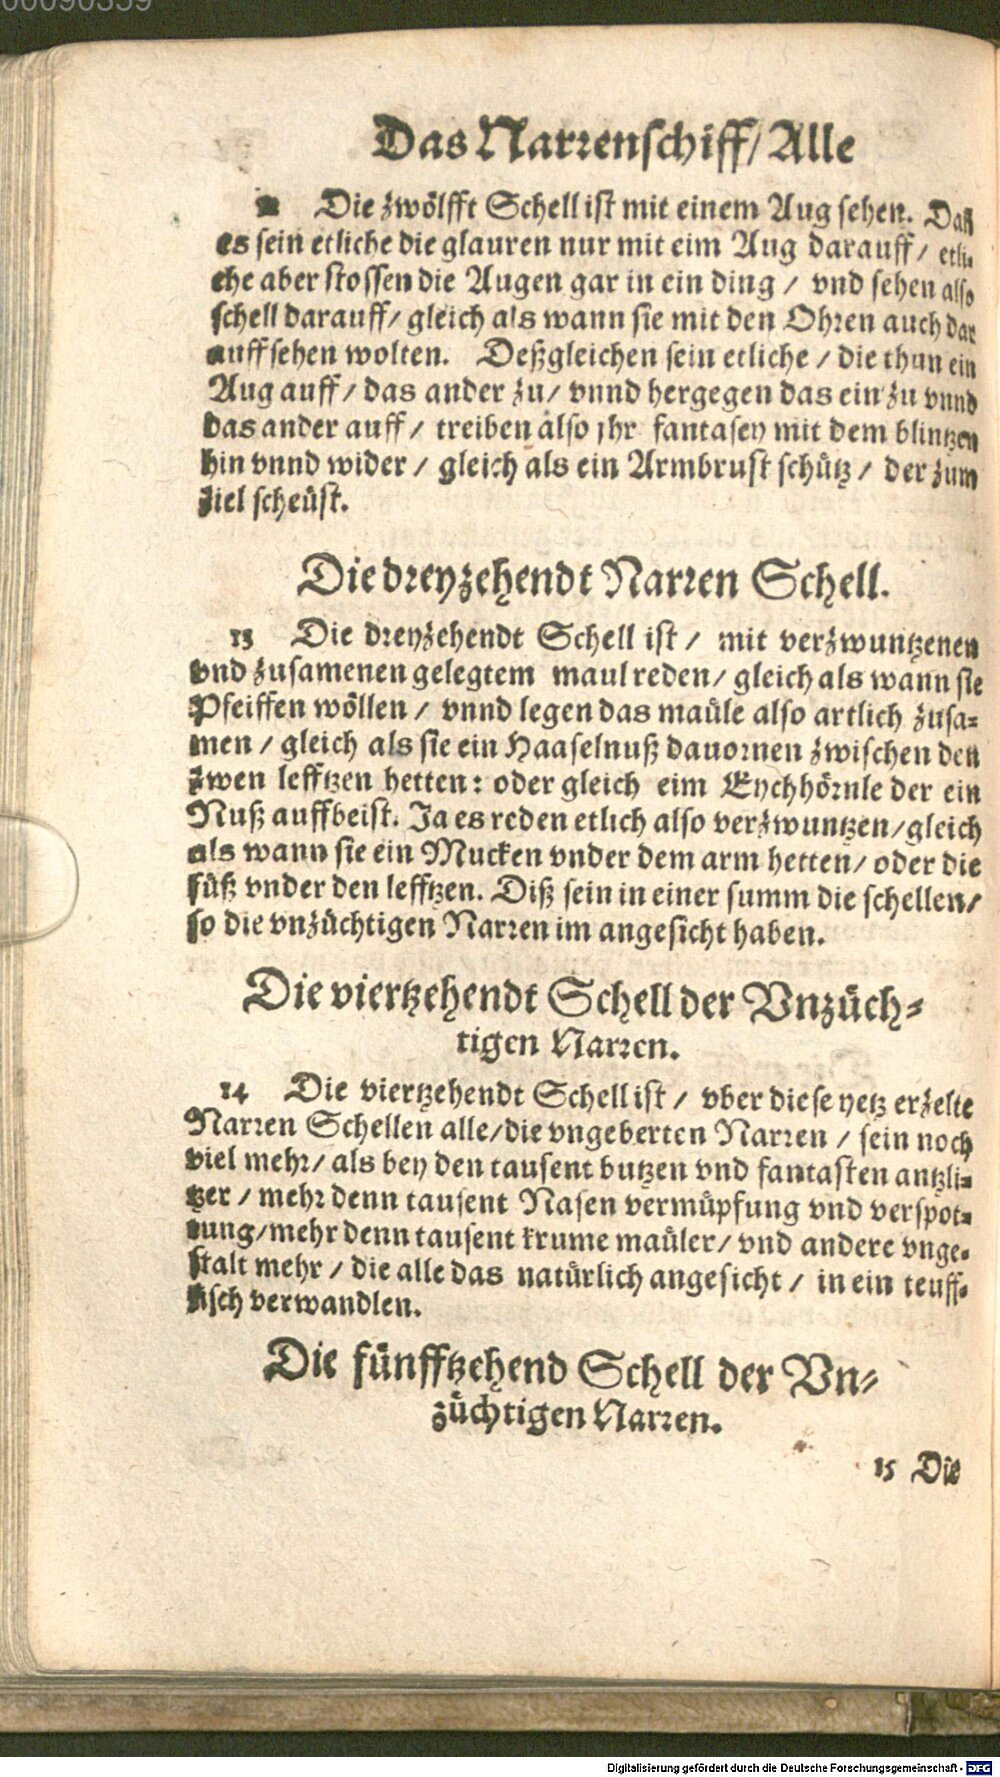 00090359
Das Narrenschiff/ Alle
Die zwölfft Schell ist mit einem Aug sehen. Dañ
es sein etliche die glauren nur mit eim Aug darauff/ etli-
che aber stossen die Augen gar in ein ding / vnd sehen also
schell darauff/ gleich als wann sie mit den Ohren auch dar
auff sehen wolten. Deßgleichen sein etliche / die thun ein
Aug auff/ das ander zu/ vnnd hergegen das ein zu vnnd
das ander auff/ treiben also jhr fantasey mit dem blintzen
hin vnnd wider / gleich als ein Armbrust schütz / der zum
ziel scheüst.
Die dreyzehendt Narren Schell.
13 Die dreyzehendt Schell ist / mit verzwuntzenen
vnd zusamenen gelegtem maul reden/ gleich als wann sie
Pfeiffen wöllen / vnnd legen das maüle also artlich zusa-
men / gleich als sie ein Haaselnuß dauornen zwischen den
zwen lefftzen hetten: oder gleich eim Eychhörnle der ein
Nuß auffbeist. Ja es reden etlich also verzwuntzen/gleich
als wann sie ein Mucken vnder dem arm hetten/ oder die
füß vnder den lefftzen. Diß sein in einer summ die schellen/
so die vnzüchtigen Narren im angesicht haben.
Die viertzehendt Schell der Vnzüch-
tigen Narren.
14 Die viertzehendt Schell ist / vber diese yetz erzelte
Narren Schellen alle/die vngeberten Narren / sein noch
viel mehr/ als bey den tausent butzen vnd fantasten antzli-
tzer / mehr denn tausent Nasen vermüpfung vnd verspot-
tung/mehr denn tausent krume maüler/ vnd andere vnge-
stalt mehr / die alle das natürlich angesicht / in ein teuff-
lisch verwandlen.
Die fünfftzehend Schell der Vn-
züchtigen Narren.
15 Die
Digitalisierung gefördert durch die Deutsche Forschungsgemeinschaft - DFG